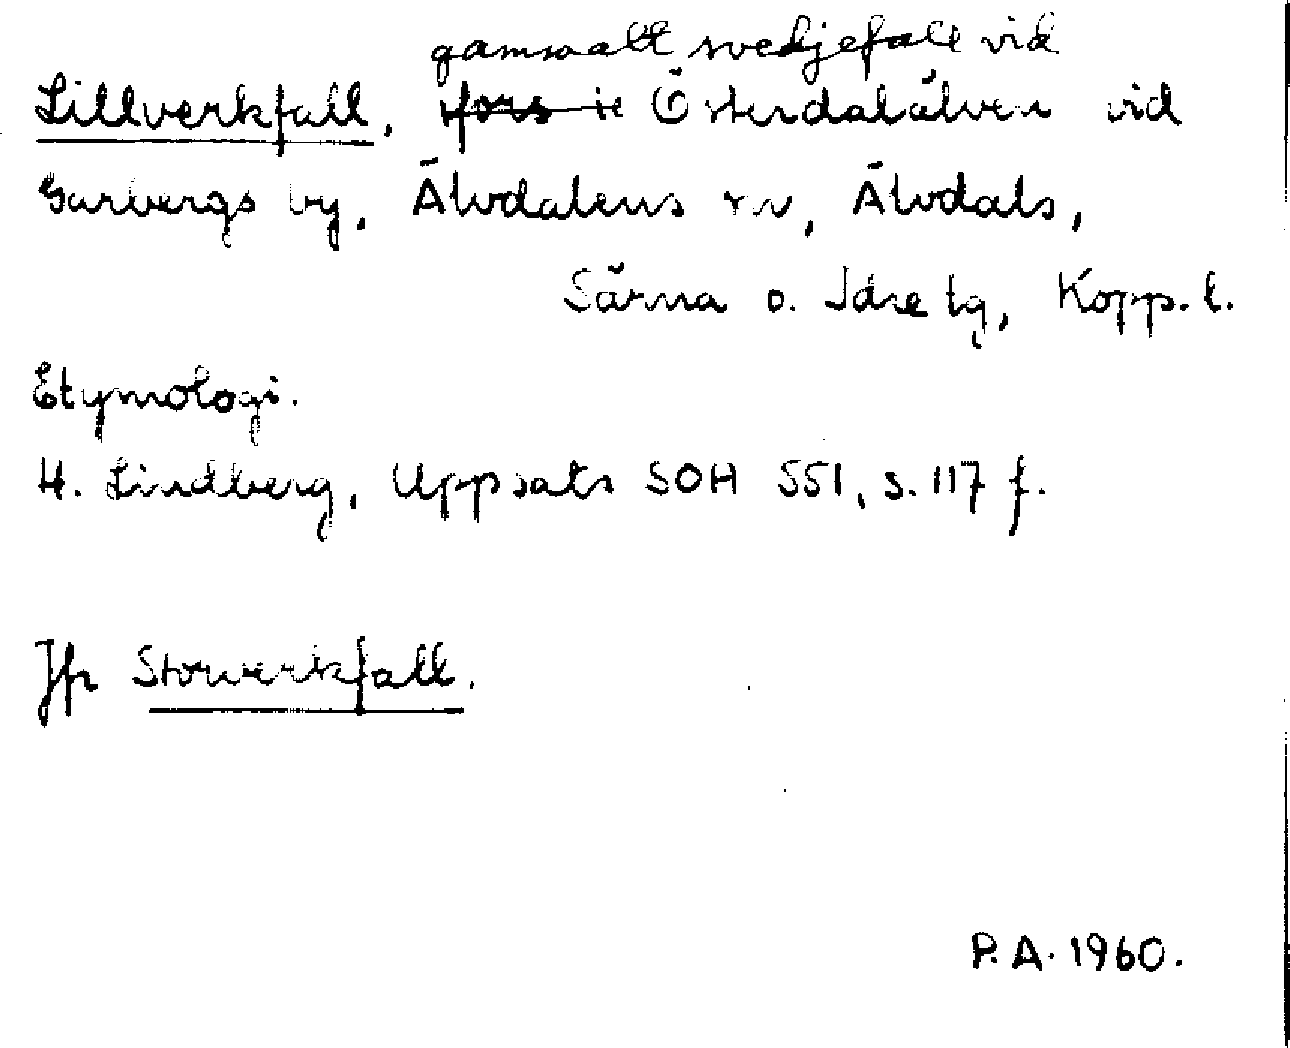 gamsalt svedjefall vid
Lillverkfall, fors i Österdalälven vid
Garbergs by, Älvdalens sn, Älvdals,
Särna o. Idre tg, Kopp. l.
Etymologi.
H. Lindberg, Uppsats SOH 551, s. 117 f.
Jfr Storverkfall.
P.A. 1960.